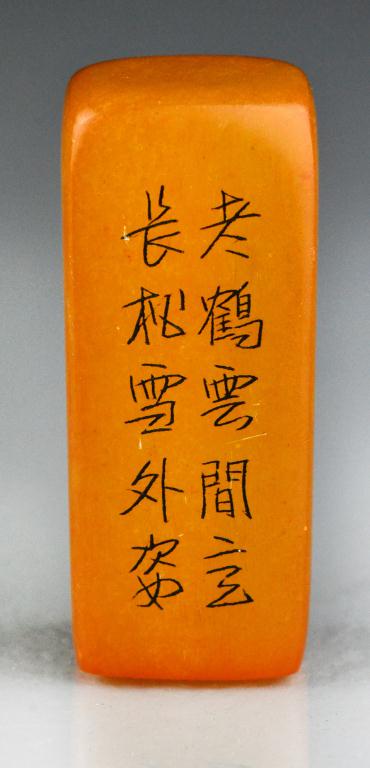 老鶴雲間立
長松雪外姿